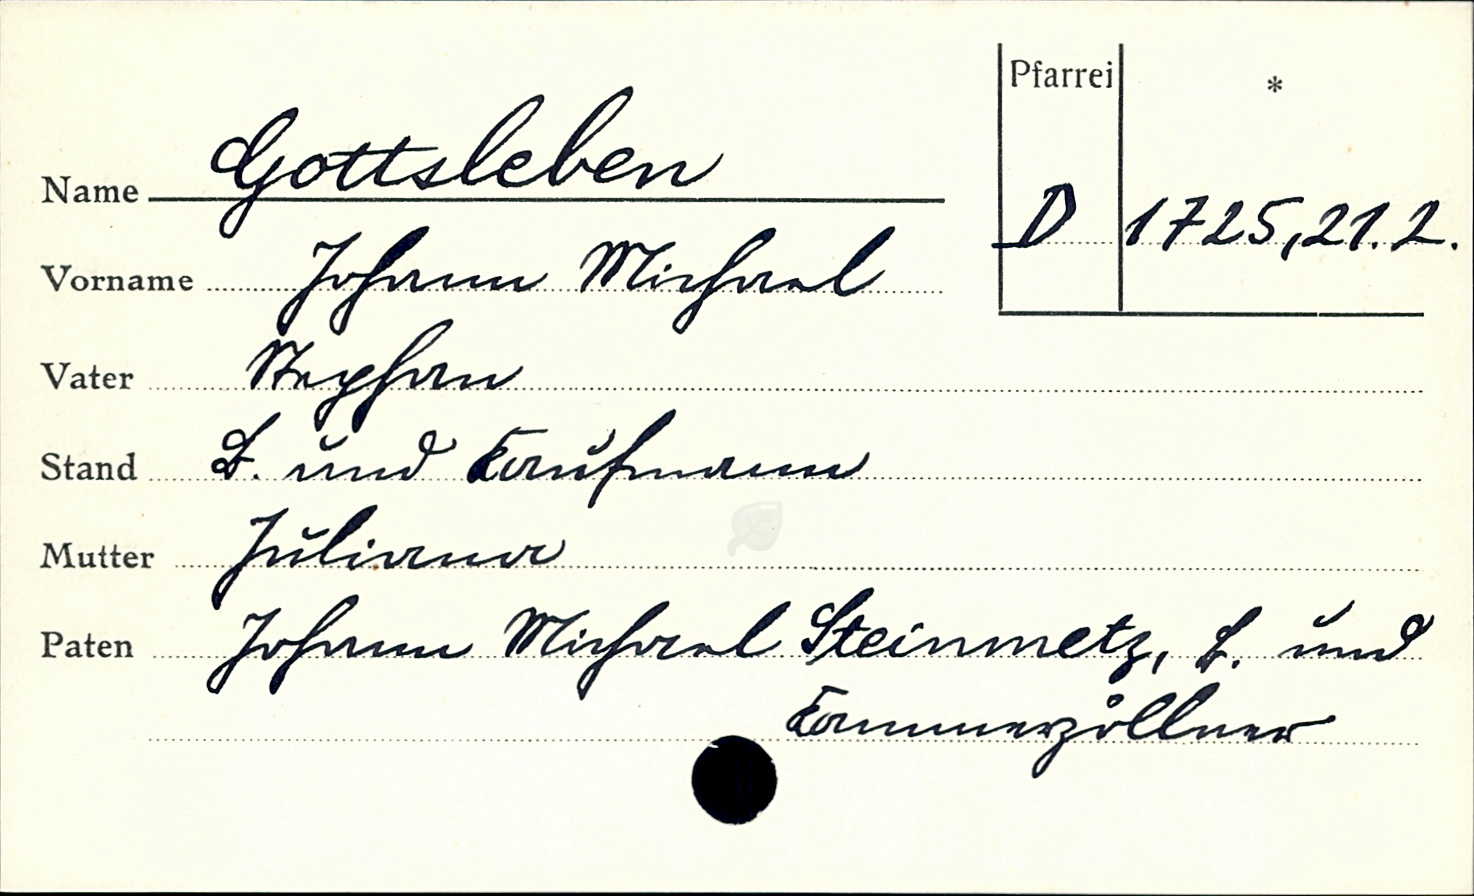 Pfarrei *
Name Gottsleben
D 1725, 21. 2.
Vorname Johann Michael
Vater Stephan
Stand B. und Kaufmann
Mutter Juliana
Paten Johann Michael Steinmetz, B. und
Kammerzöllner